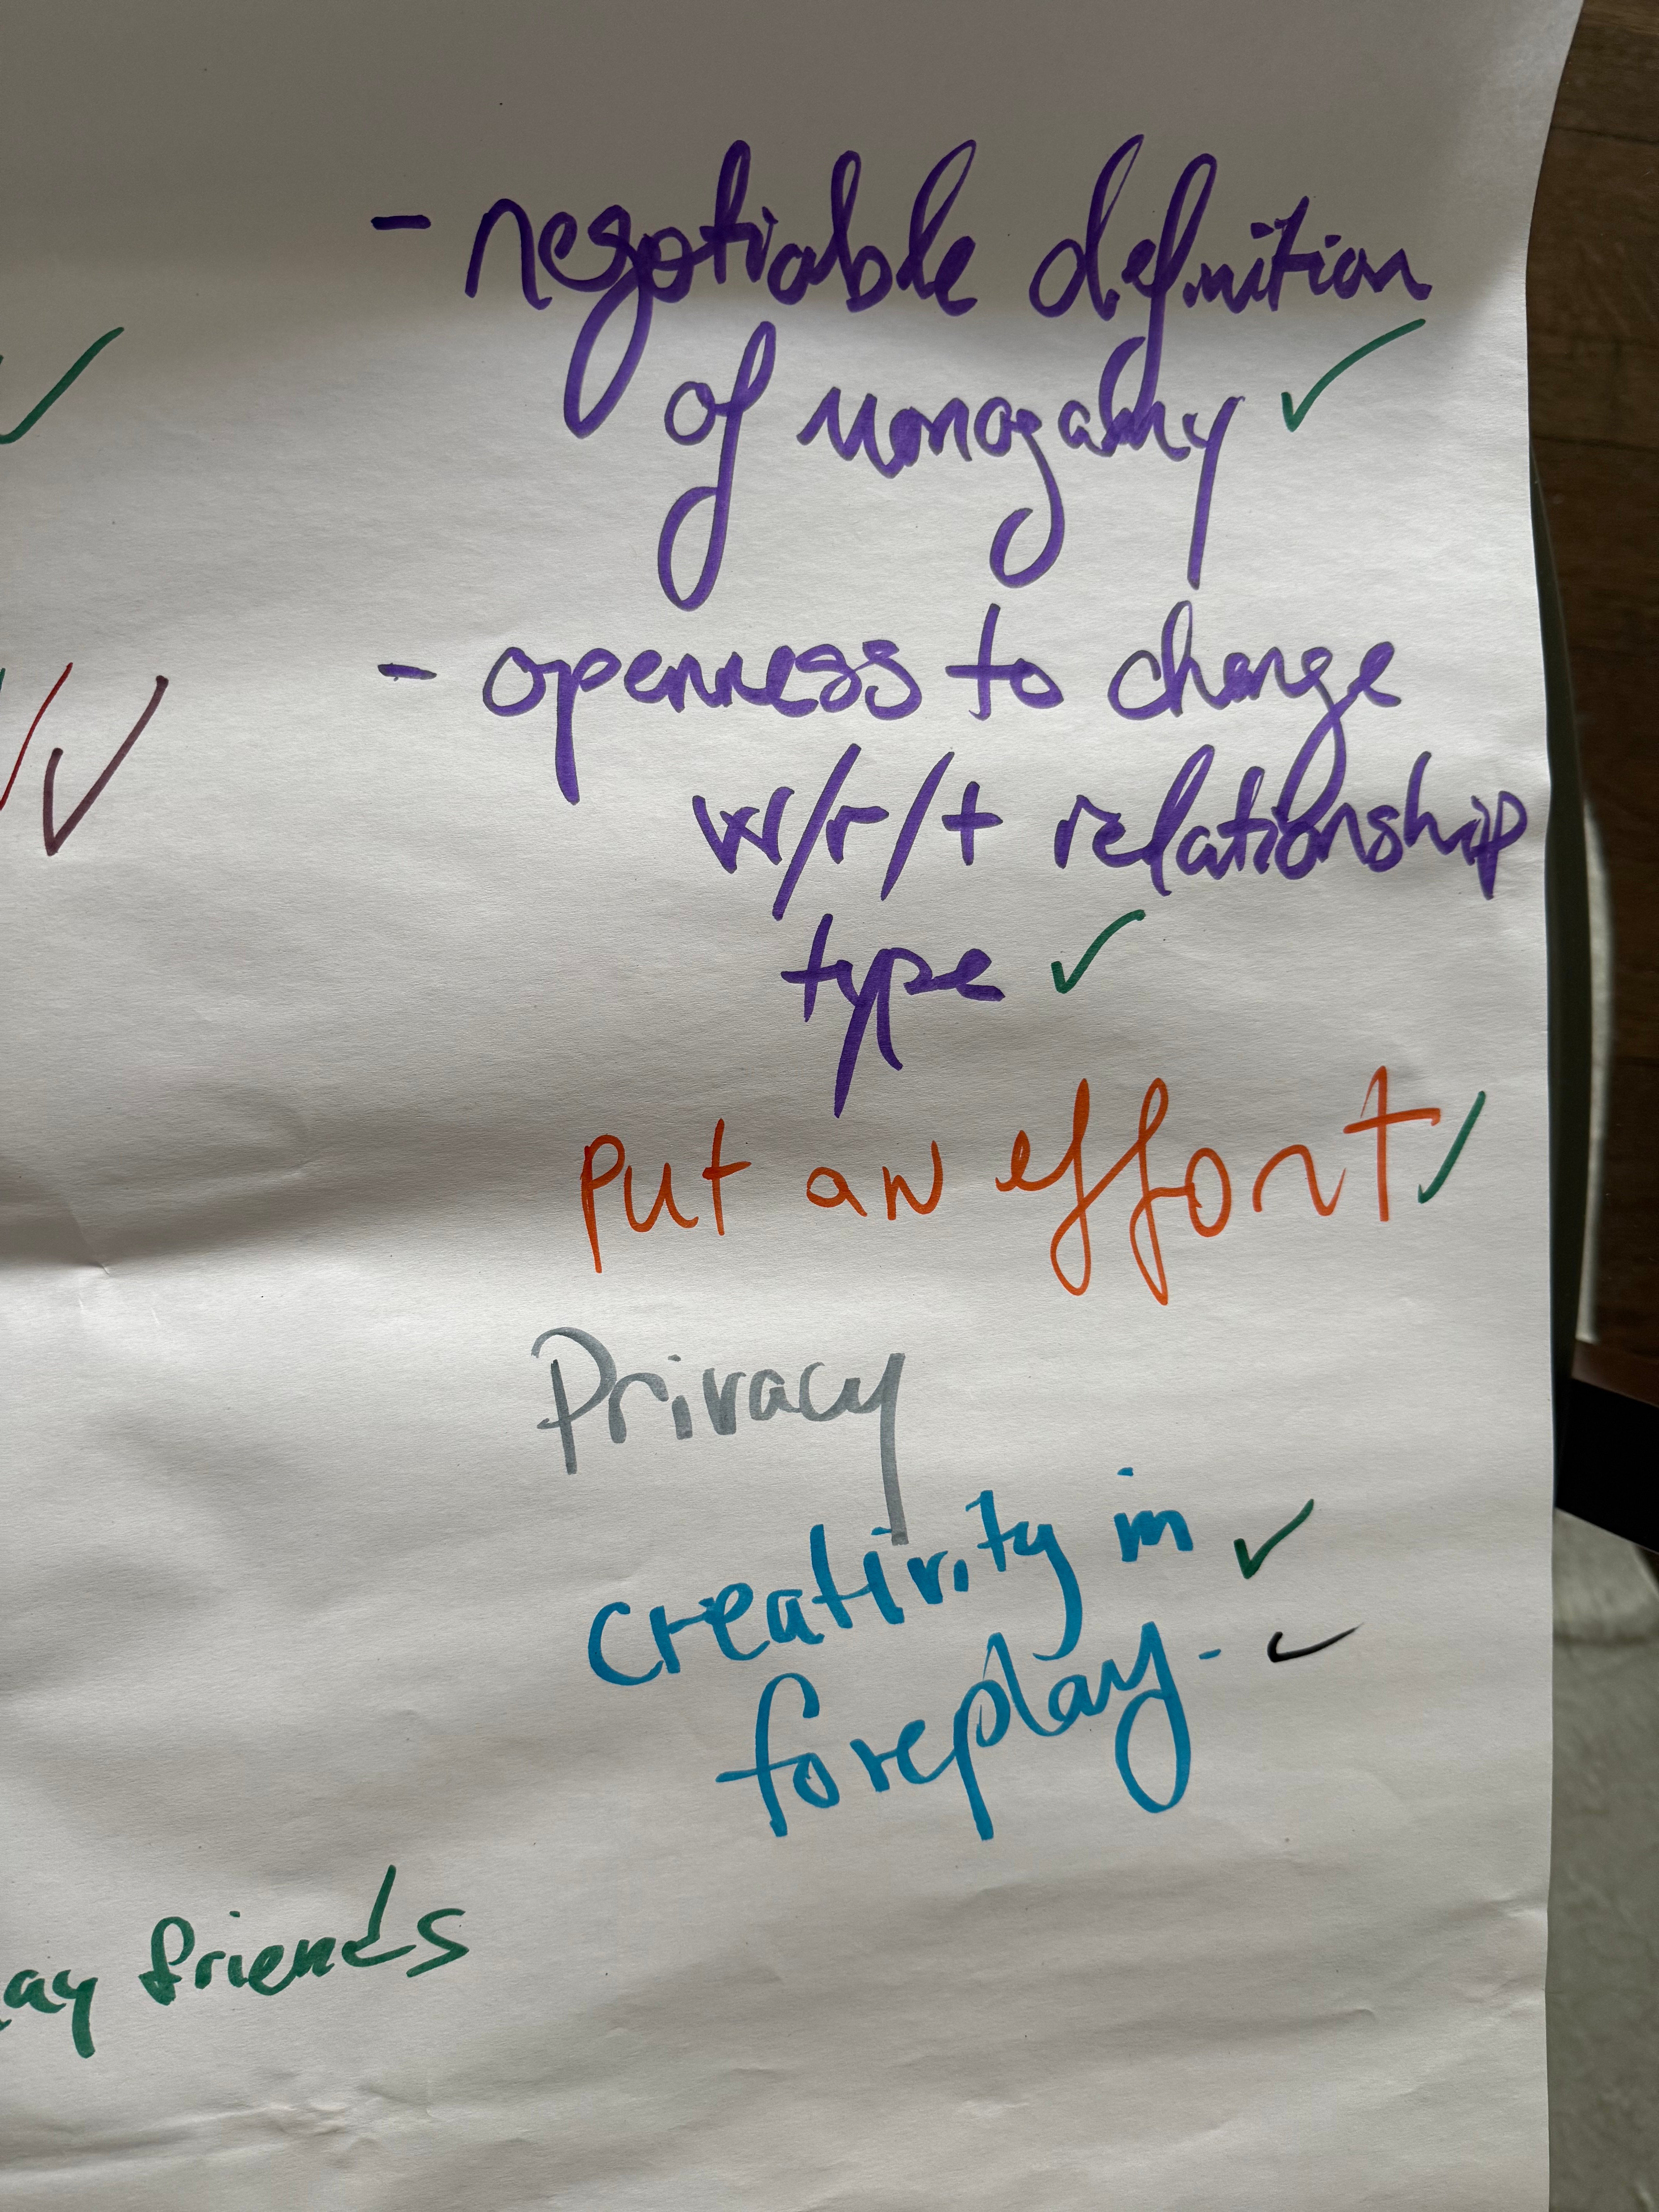 - negotiable definition
of monogamy ✓
- openness to change
w/r/t relationship
type ✓
put an effort ✓
Privacy
creativity in ✓
foreplay. - ✓
friends